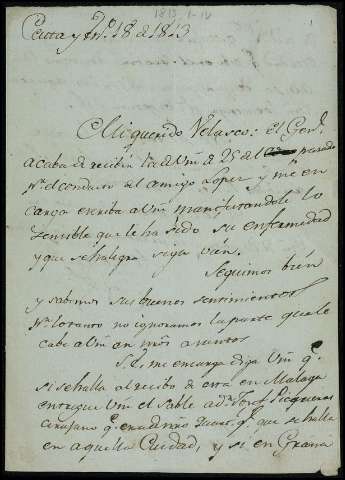 1813-1-18
Ceuta y En.o 18 de 1813
Mi querido Velasco: el Gen.l
acaba de recibir la de Vm. de 25 del pasado
p.r el conducto del amigo Lopez y me en
carga escriba a Vm. manifestandole lo
sensible que le ha sido su enfermedad
y que se halegra siga bien.
Seguimos bien
y sabemos sus buenos sentimientos
p.r lo tanto no ignoramos la parte que le
cabe a Vm. en nros asuntos
S.E. me encarga diga Vm. q.e
si se halla al recibo de esta en Malaga
entregue Vm. el sable a d.n José
cirujano q.e que se halla
en aquella Ciudad, y si en Grana